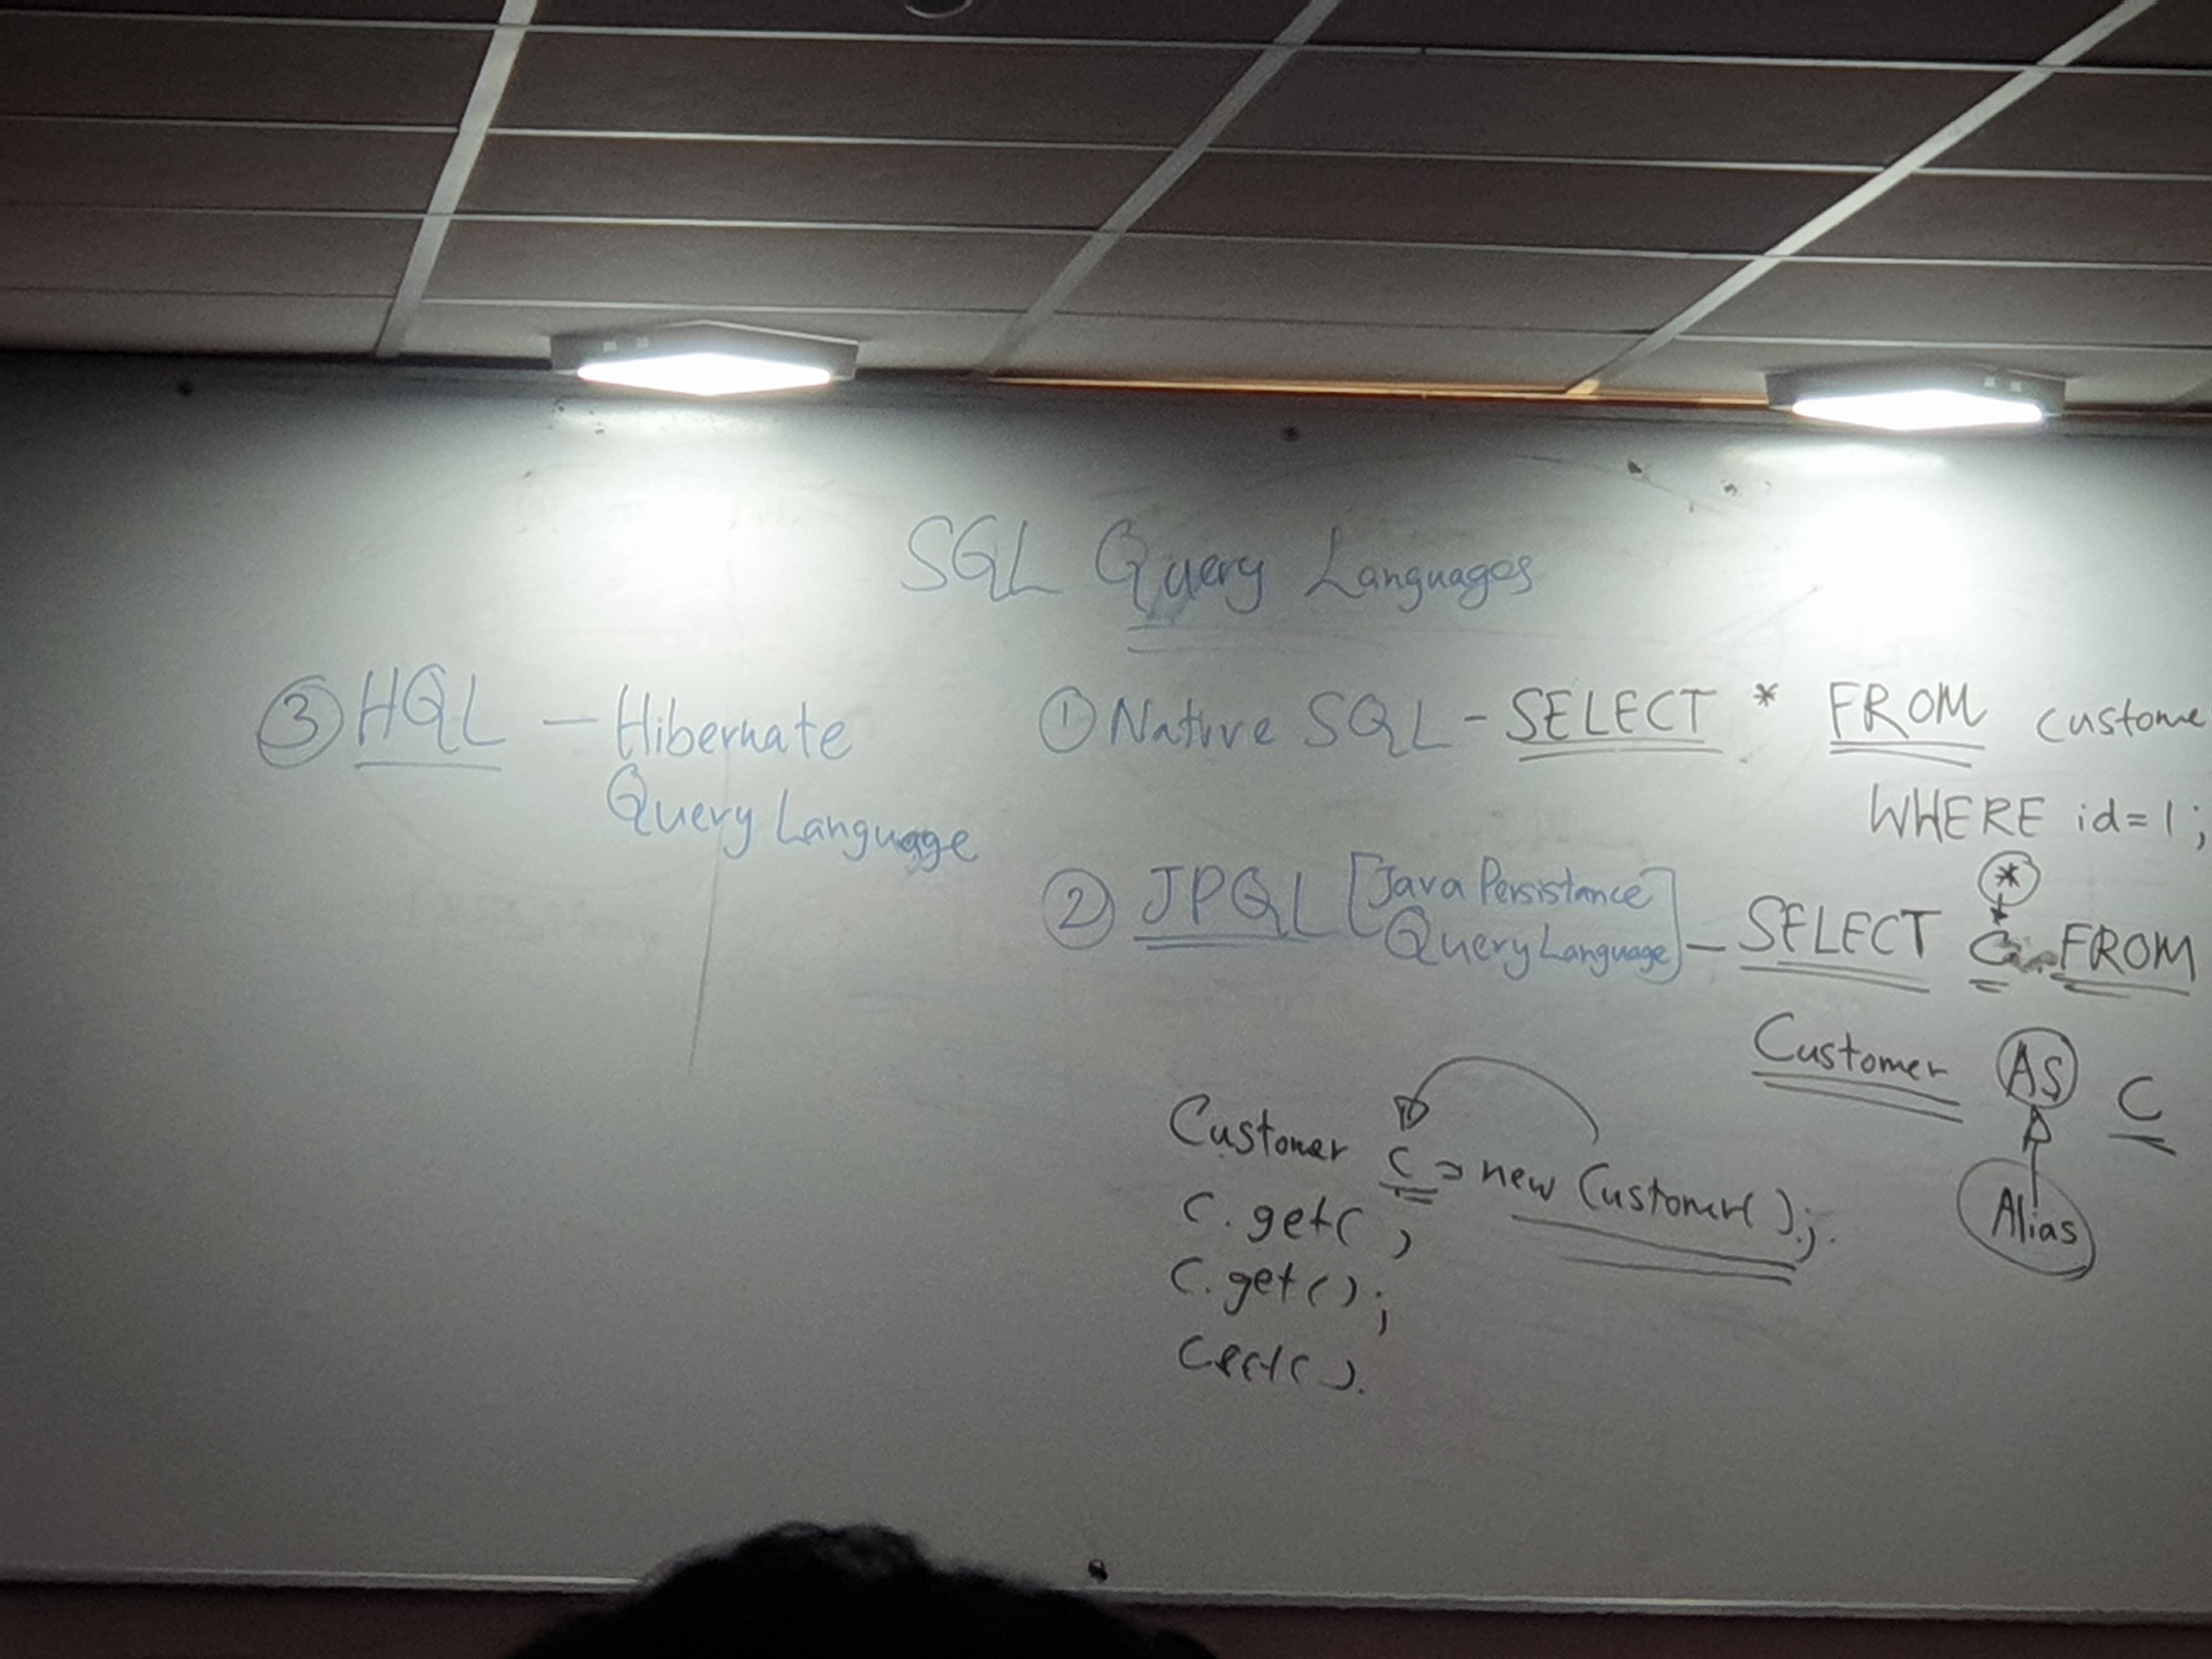 SQL Query Languages
③ HQL - Hibernate
Query Language
① Native SQL - SELECT * FROM custome
WHERE id=1;
② JPQL [Java Persistance
Query Language] - SELECT C FROM
*
Customer AS C
Alias
Customer c = new Customer();
C.get( )
C.get();